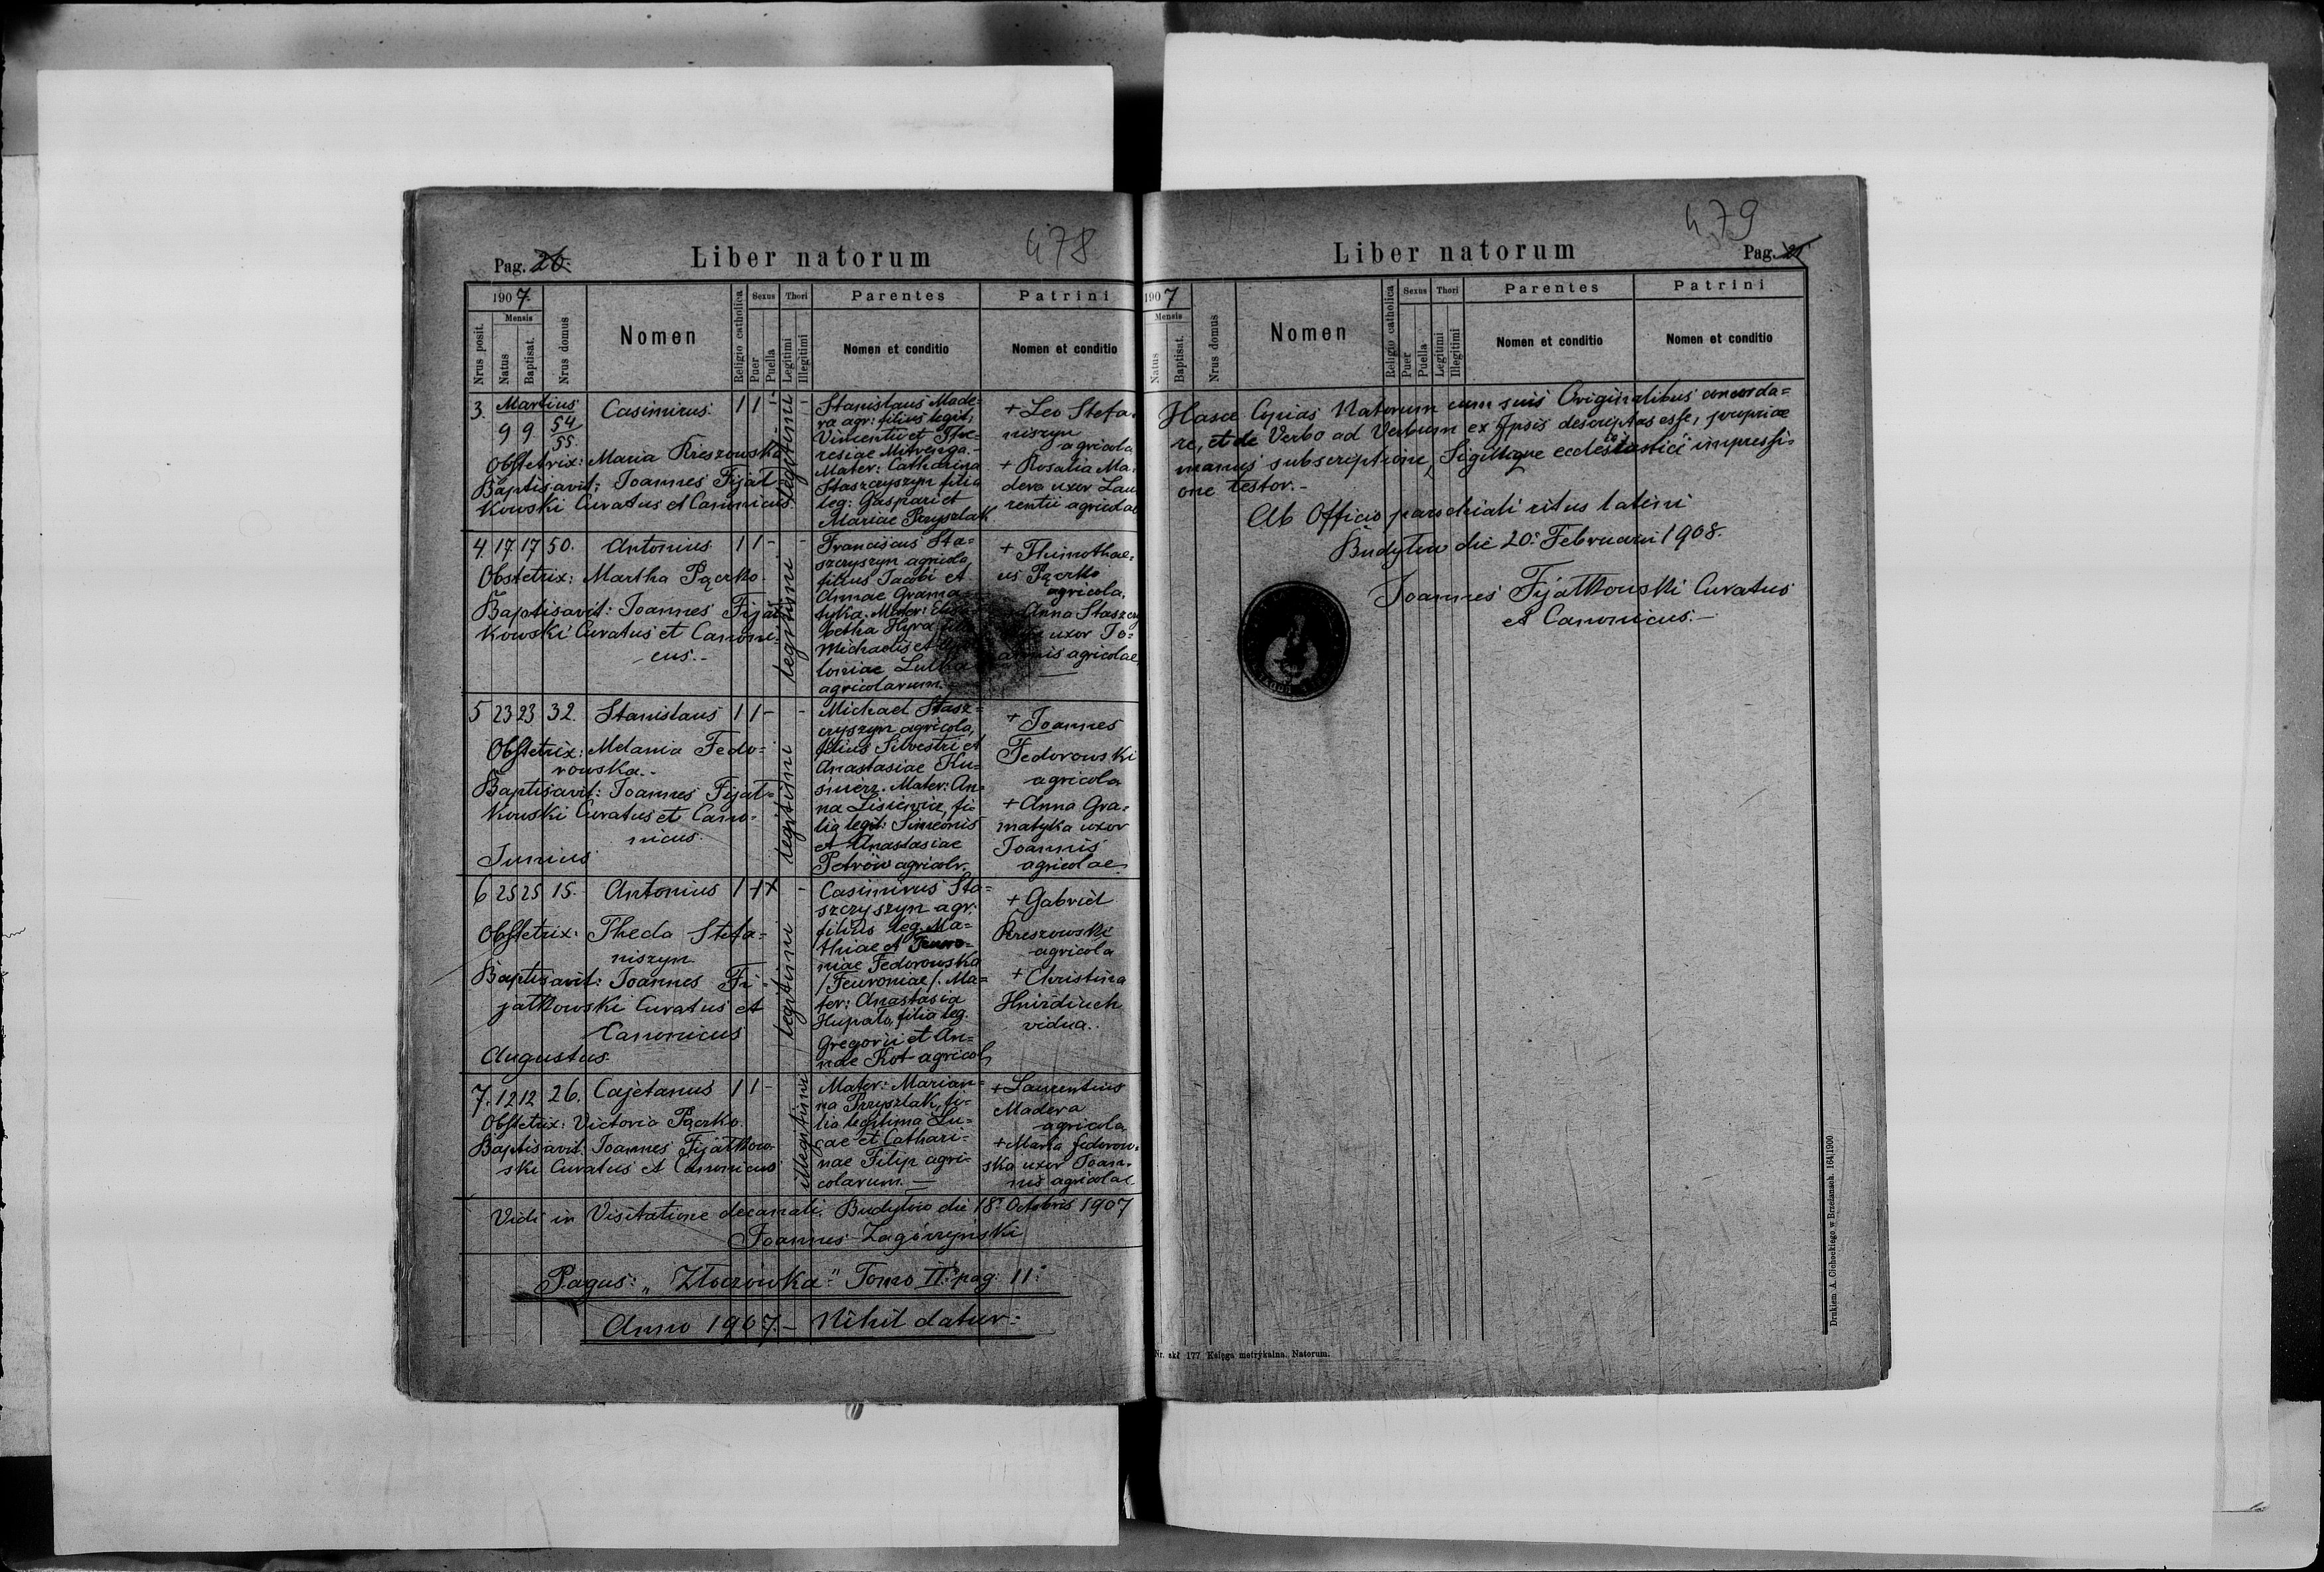 Pag. 20.
Liber natorum
478
1907.
Nrus posit.
Mensis
Natus
Baptisat.
Nrus domus
Nomen
Religio catholica
Sexus
Puer
Puella
Thori
Legitimi
Illegitimi
Parentes
Nomen et conditio
Patrini
Nomen et conditio
3. Martius
9 9 54/55 Casimirus 1 1 - legitimi -
Obstetrix: Maria Kreszowska
Baptisavit: Joannes Fijał-
kowski Curatus et Canonicus.
Stanislaus Made-
ra agr: filius legit:
Vincentii et The-
resiae
Mater: Catharina
Staszczyszyn filia
leg: Gaspari et
Mariae Przyszlak
+ Leo Stefa-
niszyn
agricola
+ Rosalia Ma-
dera uxor Lau-
rentii agricolae
4. 17. 17 50. Antonius 1 1 - legitimi -
Obstetrix: Martha Pączko.
Baptisavit: Joannes Fijał-
kowski Curatus et Canoni-
cus.-
Franciscus Sta-
szczyszyn agricola
filius Jacobi et
Annae Grama-
tyka. Mater: Elisa-
betha Hyra
Michaelis et
loniae Lulka
agricolarum.
+ Thimothae-
us Pączko
agricola,
Anna Staszczy
uxor Jo-
annis agricolae,
5 23 23 32. Stanislaus 1 1 - legitimi -
Obstetrix: Melania Fedo-
rowska.-
Baptisavit: Joannes Fijał-
kowski Curatus et Cano-
nicus.
Michael Stasz-
czyszyn agricola,
filius Silvestri et
Anastasiae Ku-
śnierz. Mater: An-
na Lisiewicz, fi-
lia legit: Simeonis
et Anastasiae
Petrów agricolr.
+ Joannes
Fedorowski
agricola
+ Anna Gra-
matyka uxor
Joannis
agricolae.
Junius
6 25 25 15. Antonius 1 + x legitimi -
Obstetrix: Thecla Stefa-
niszyn
Baptisavit: Joannes Fi-
jałkowski Curatus et
Canonicus
Casimirus Sta-
szczyszyn agr:
filius leg. Ma-
thiae et
niae Fedorowska
/Feuroniae/. Ma-
ter: Anastasia
Hupało, filia leg.
Gregorii et An-
nae Kot agricol,
+ Gabriel
Kreszowski
agricola
+ Christina
Hnidiuch
vidua.
Augustus.
7. 12 12 26. Cajetanus 1 1 - illegitimi
Obstetrix: Victoria Pączko.
Baptisavit: Joannes Fijałkow-
ski Curatus et Canonicus
Mater: Marian-
na Przyszlak, fi-
lia legitima Lu-
cae et Cathari-
nae Filip agri-
colarum. —
+ Laurentius
Madera
agricola
+ Maria Fedorow-
ska uxor Joan-
nis agricolae
Vidi in Visitatione decanali. Budyłów die 18. Octobris 1907
Joannes Zagórzyński
Pagus: „Złoczówka." Tomo II. pag: 11.
Anno 1907.- Nihil datur.
479
Liber natorum
Pag. 21
1907
Mensis
Natus
Baptisat.
Nrus domus
Nomen
Religio catholica
Sexus
Puer
Puella
Thori
Legitimi
Illegitimi
Parentes
Nomen et conditio
Patrini
Nomen et conditio
Hasce Copias Natorum cum suis Originalibus concorda-
re, et de Verbo ad Verbum ex Ipsis descriptas esse, propriae
manus subscriptione, Sigilloque ecclesiastici impressi-
one testor.-
Ab Officio parochiali ritus latini
Budyłów die 20. Februarii 1908.
Joannes Fijałkowski Curatus
et Canonicus.—
Drukiem A. Cichockiego w Brzeżanach. 164/1900
Nr. akł 177 Księga metrykalna. Natorum.